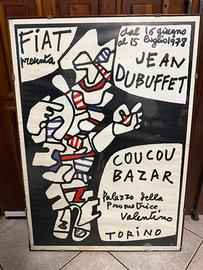 FIAT
presenta
dal 16 giugno
al 15 luglio 1978
JEAN
DUBUFFET
COUCOU
BAZAR
Palazzo della
Promotrice,
Valentino
TORINO